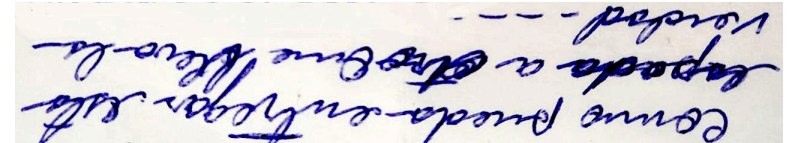 Como pueda entregar esta
espada a otro me lleva la
verdad ---